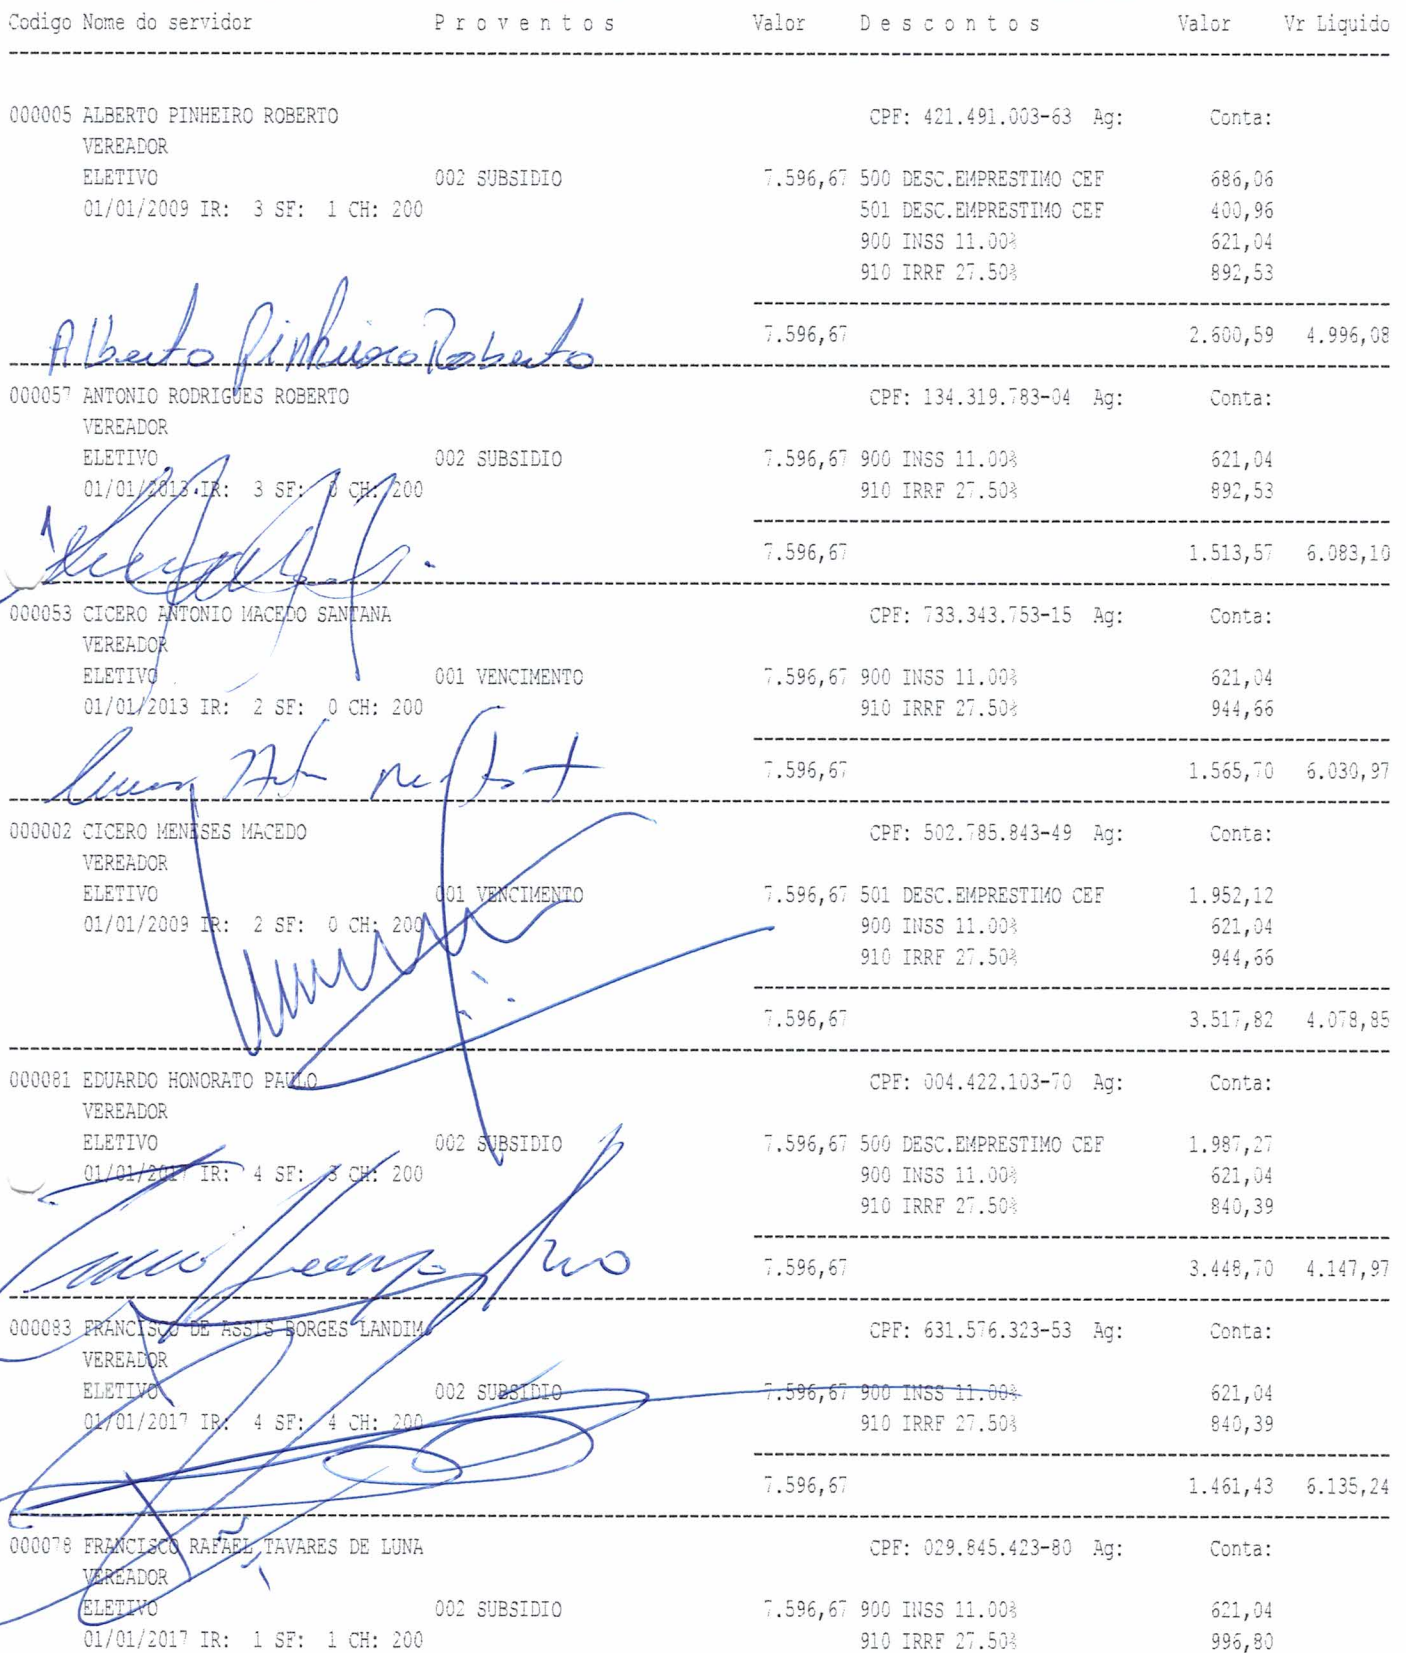 Codigo Nome do servidor P r o v e n t o s Valor D e s c o n t o s Valor Vr Liquido
000005 ALBERTO PINHEIRO ROBERTO CPF: 421.491.003-63 Ag: Conta:
VEREADOR
ELETIVO 002 SUBSIDIO 7.596,67 500 DESC.EMPRESTIMO CEF 686,06
01/01/2009 IR: 3 SF: 1 CH: 200 501 DESC.EMPRESTIMO CEF 400,96
900 INSS 11.00% 621,04
910 IRRF 27.50% 892,53
7.596,67 2.600,59 4.996,08
Alberto Pinheiro Roberto
000057 ANTONIO RODRIGUES ROBERTO CPF: 134.319.783-04 Ag: Conta:
VEREADOR
ELETIVO 002 SUBSIDIO 7.596,67 900 INSS 11.00% 621,04
01/01/2013 IR: 3 SF: 0 CH: 200 910 IRRF 27.50% 892,53
7.596,67 1.513,57 6.083,10
000053 CICERO ANTONIO MACEDO SANTANA CPF: 733.343.753-15 Ag: Conta:
VEREADOR
ELETIVO 001 VENCIMENTO 7.596,67 900 INSS 11.00% 621,04
01/01/2013 IR: 2 SF: 0 CH: 200 910 IRRF 27.50% 944,66
7.596,67 1.565,70 6.030,97
000002 CICERO MENESES MACEDO CPF: 502.785.843-49 Ag: Conta:
VEREADOR
ELETIVO 001 VENCIMENTO 7.596,67 501 DESC.EMPRESTIMO CEF 1.952,12
01/01/2009 IR: 2 SF: 0 CH: 200 900 INSS 11.00% 621,04
910 IRRF 27.50% 944,66
7.596,67 3.517,82 4.078,85
000081 EDUARDO HONORATO PAULO CPF: 004.422.103-70 Ag: Conta:
VEREADOR
ELETIVO 002 SUBSIDIO 7.596,67 500 DESC.EMPRESTIMO CEF 1.987,27
01/01/2017 IR: 4 SF: 3 CH: 200 900 INSS 11.00% 621,04
910 IRRF 27.50% 840,39
7.596,67 3.448,70 4.147,97
000083 FRANCISCO DE ASSIS BORGES LANDIM CPF: 631.576.323-53 Ag: Conta:
VEREADOR
ELETIVO 002 SUBSIDIO 7.596,67 900 INSS 11.00% 621,04
01/01/2017 IR: 4 SF: 4 CH: 200 910 IRRF 27.50% 840,39
7.596,67 1.461,43 6.135,24
000078 FRANCISCO RAFAEL TAVARES DE LUNA CPF: 029.845.423-80 Ag: Conta:
VEREADOR
ELETIVO 002 SUBSIDIO 7.596,67 900 INSS 11.00% 621,04
01/01/2017 IR: 1 SF: 1 CH: 200 910 IRRF 27.50% 996,80